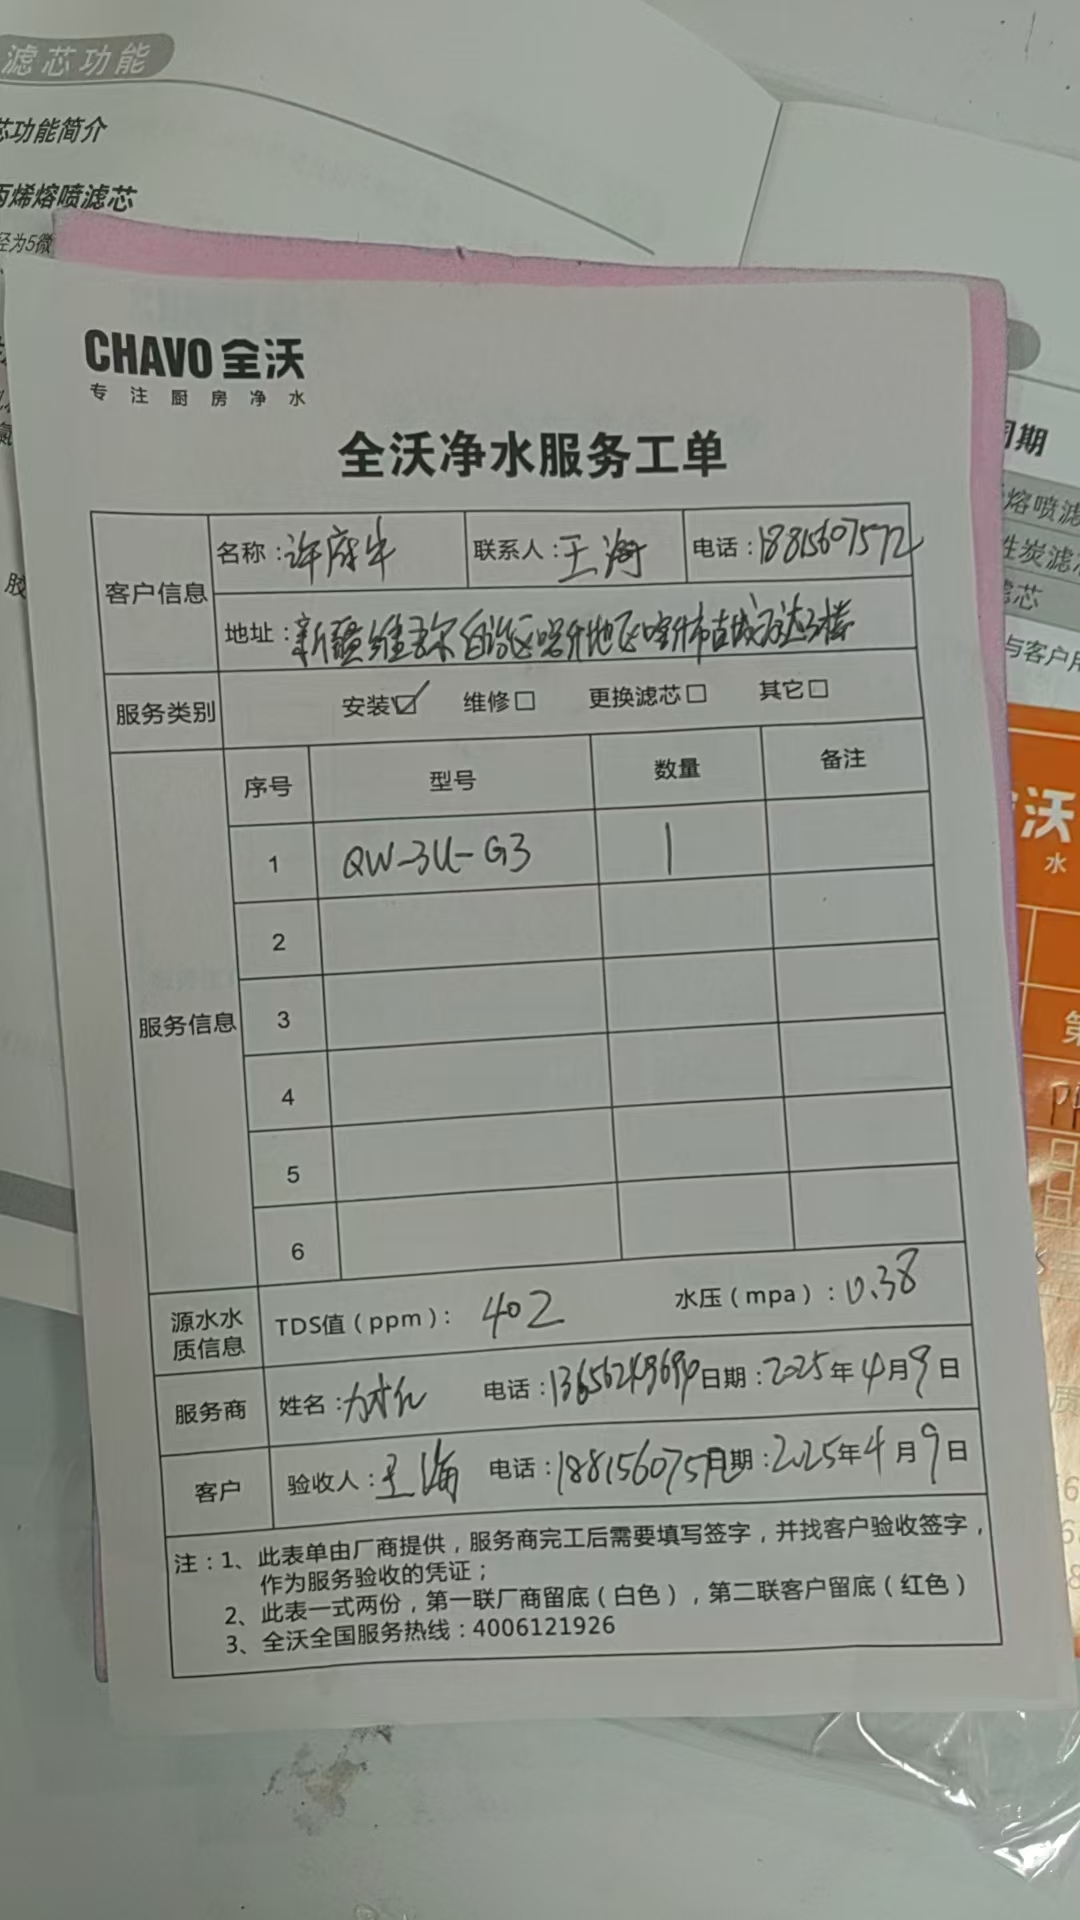 滤芯功能
芯功能简介
丙烯熔喷滤芯
径为5微
CHAVO 全沃
专注厨房净水
全沃净水服务工单
客户信息
名称：许府牛
联系人：王海
电话：18815607572
地址：新疆维吾尔自治区哈密地区哈密市古城万达3楼
服务类别
安装☑ 维修□ 更换滤芯□ 其它□
服务信息
序号 型号 数量 备注
1 QW-3U-G3 1
2
3
4
5
6
源水水质信息
TDS值（ppm）：402 水压（mpa）：0.38
服务商
姓名： 电话：13656249694 日期：2025年4月9日
客户
验收人：王海 电话：18815607572 日期：2025年4月9日
注：1、此表单由厂商提供，服务商完工后需要填写签字，并找客户验收签字，
作为服务验收的凭证；
2、此表一式两份，第一联厂商留底（白色），第二联客户留底（红色）
3、全沃全国服务热线：4006121926
周期
熔喷滤
性炭滤
滤芯
与客户
沃
水
第